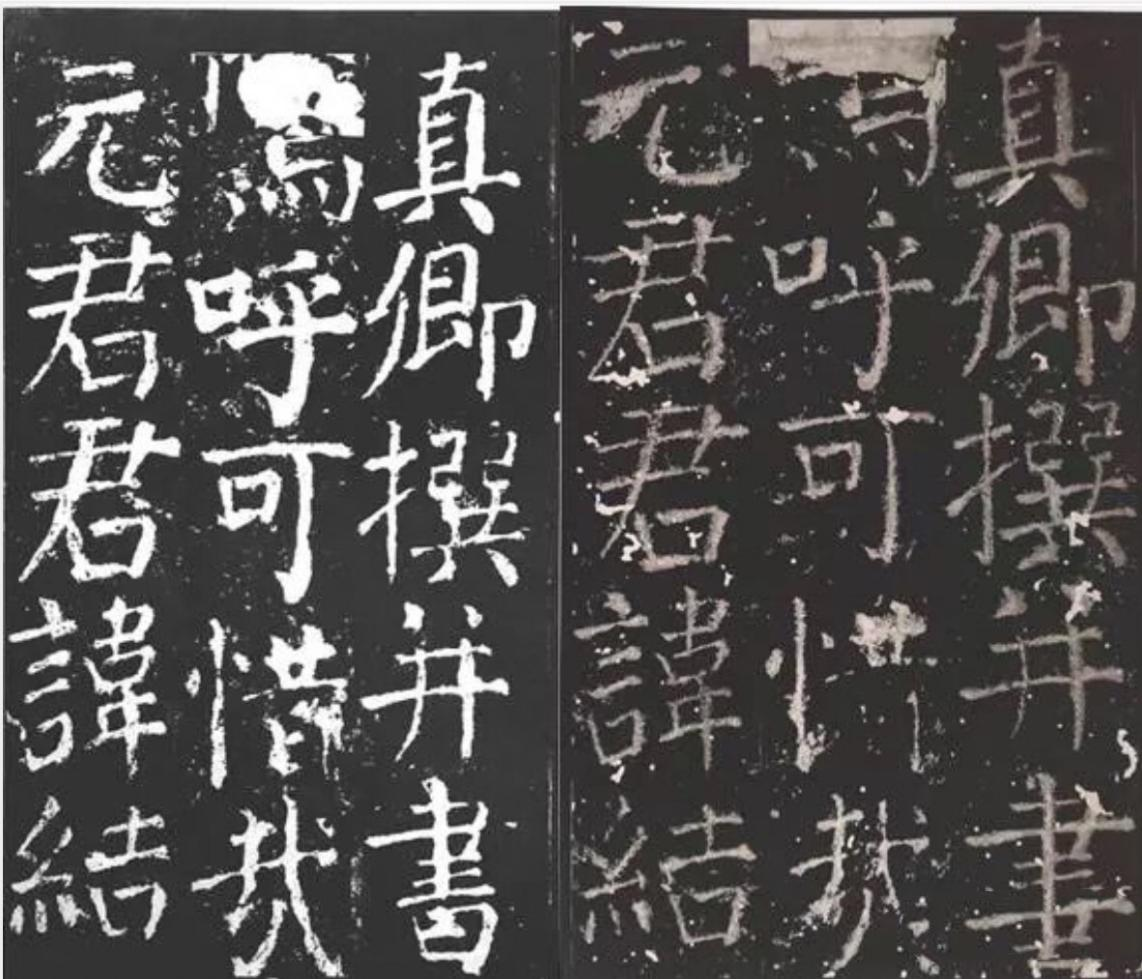 真卿撰并書
嗚呼可惜哉
元君君諱結
真卿撰并書
嗚呼可惜哉
元君君諱結